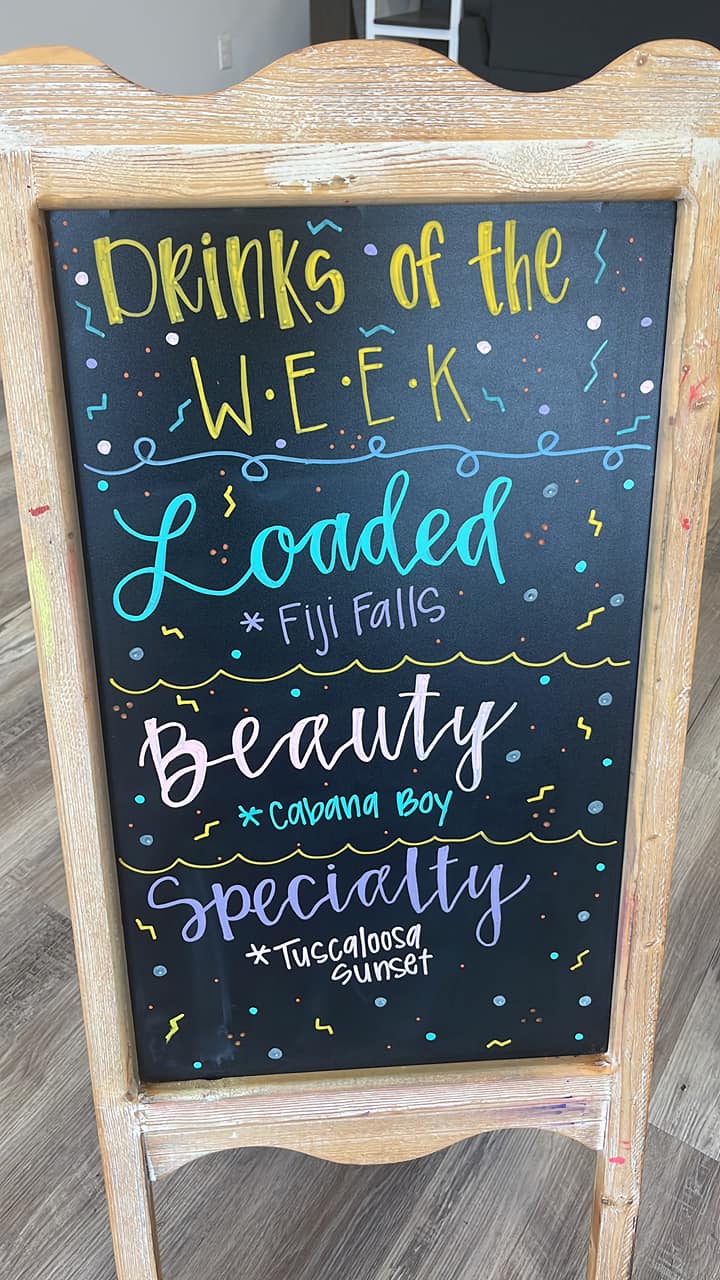 Drinks of the
W·E·E·K
Loaded
* Fiji Falls
Beauty
* Cabana Boy
Specialty
* Tuscaloosa
Sunset